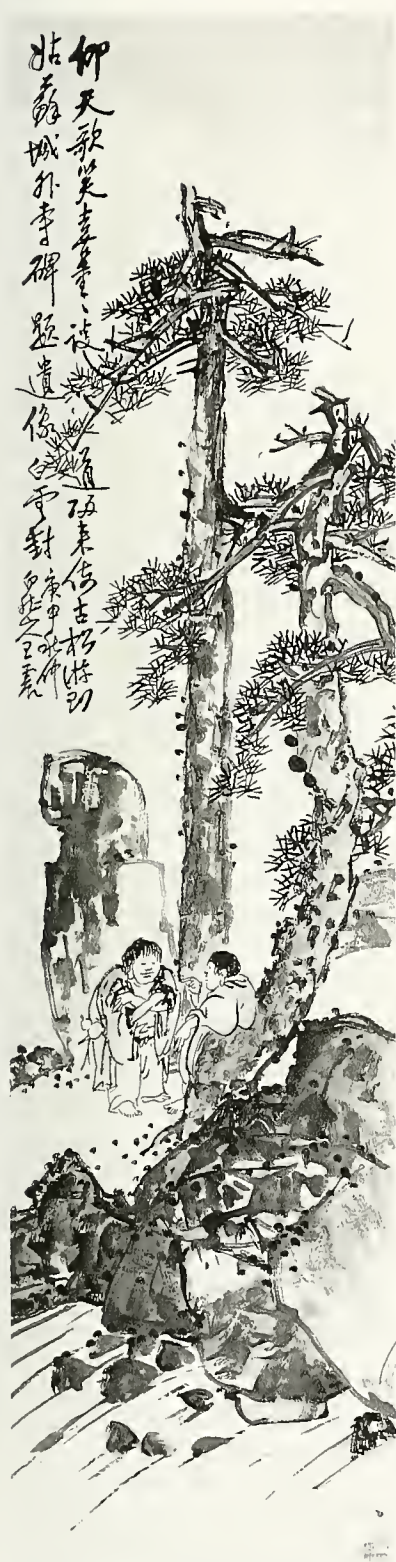 仰天歌笑喜重〻談道歸來倚古松游到
姑蘇城外寺碑題遺像白雲封
庚申秋仲
白龍山人王震